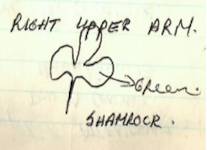 RIGHT UPPER ARM.
Green.
SHAMROCK.